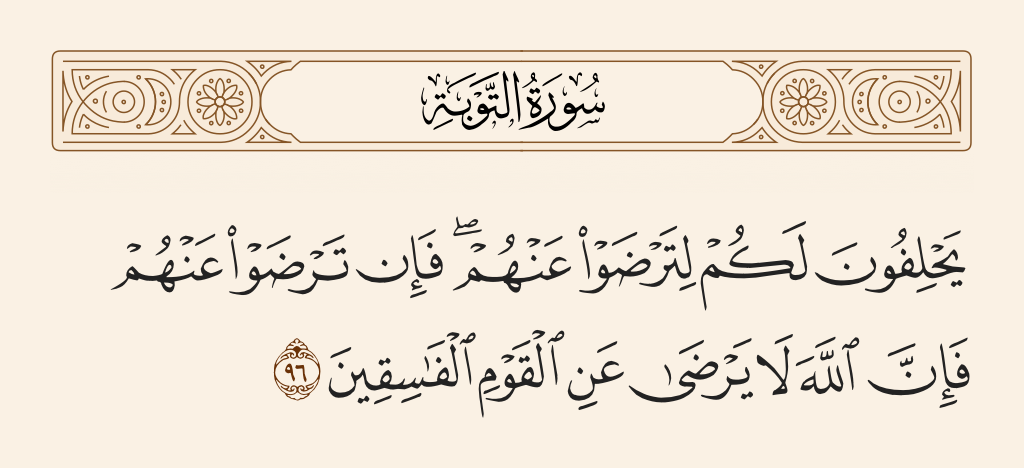 سُورَةُ التَّوۡبَةِ
يَحۡلِفُونَ لَكُمۡ لِتَرۡضَوۡاْ عَنۡهُمۡۖ فَإِن تَرۡضَوۡاْ عَنۡهُمۡ
فَإِنَّ ٱللَّهَ لَا يَرۡضَىٰ عَنِ ٱلۡقَوۡمِ ٱلۡفَٰسِقِينَ ٩٦